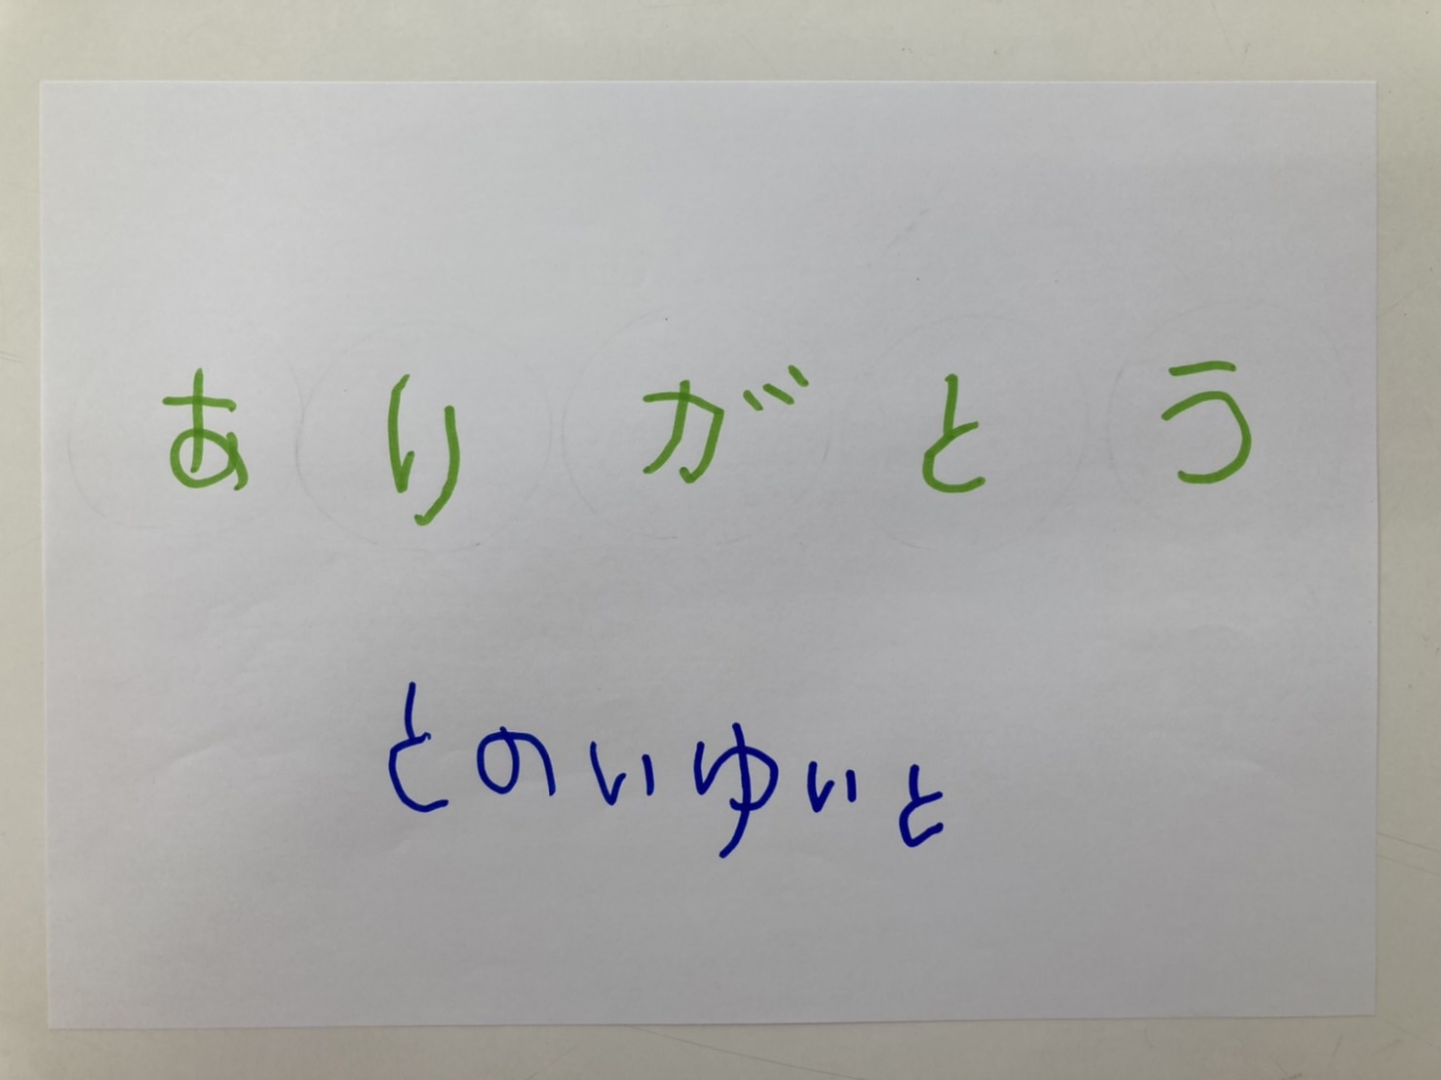 ありがとう
とのいゆいと